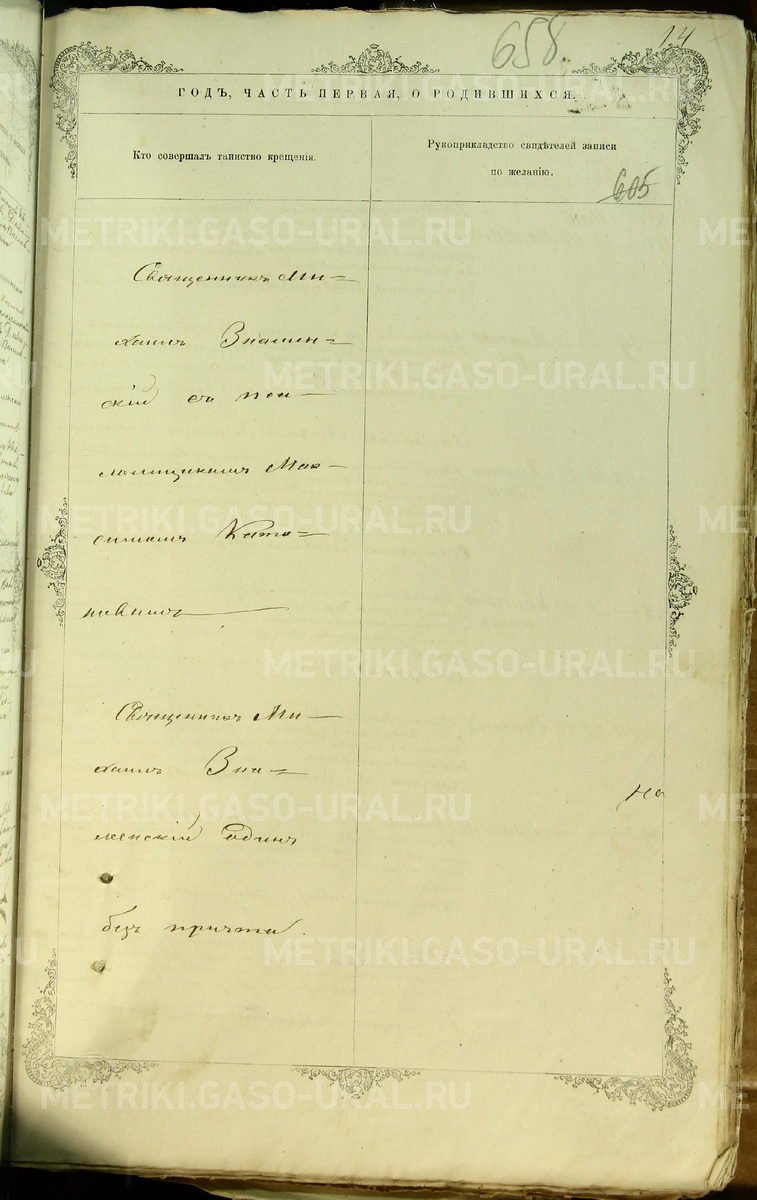 658
14
ГОДЪ, ЧАСТЬ ПЕРВАЯ, О РОДИВШИХСЯ.
Кто совершалъ таинство крещенія.
Рукоприкладство свидѣтелей записи
по желанію.
605
Священникъ Ми=
хаилъ Знамен=
скій съ пса-
ломщикомъ Мак-
симомъ Ката=
невымъ
Священникъ Ми-
хаилъ Зна=
менскій один
безъ причта.
METRIKI.GASO-URAL.RU